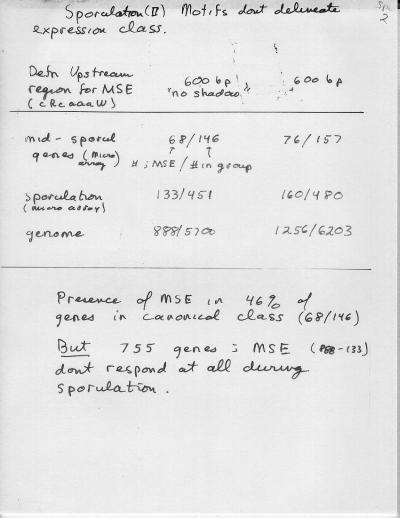 Sporulation (II) Motifs dont delineate
expression class.
2
Defn Upstream
region for MSE
(cRcaaaW)
600 bp
"no shadow"
600 bp
mid-sporul
genes (micro
array)
68/146
76/157
# ; MSE / # in group
sporulation
(micro array)
133/451
160/480
genome
888/5700
1256/6203
Presence of MSE in 46% of
genes in canonical class (68/146)
But 755 genes ; MSE (888-133)
dont respond at all during
sporulation.